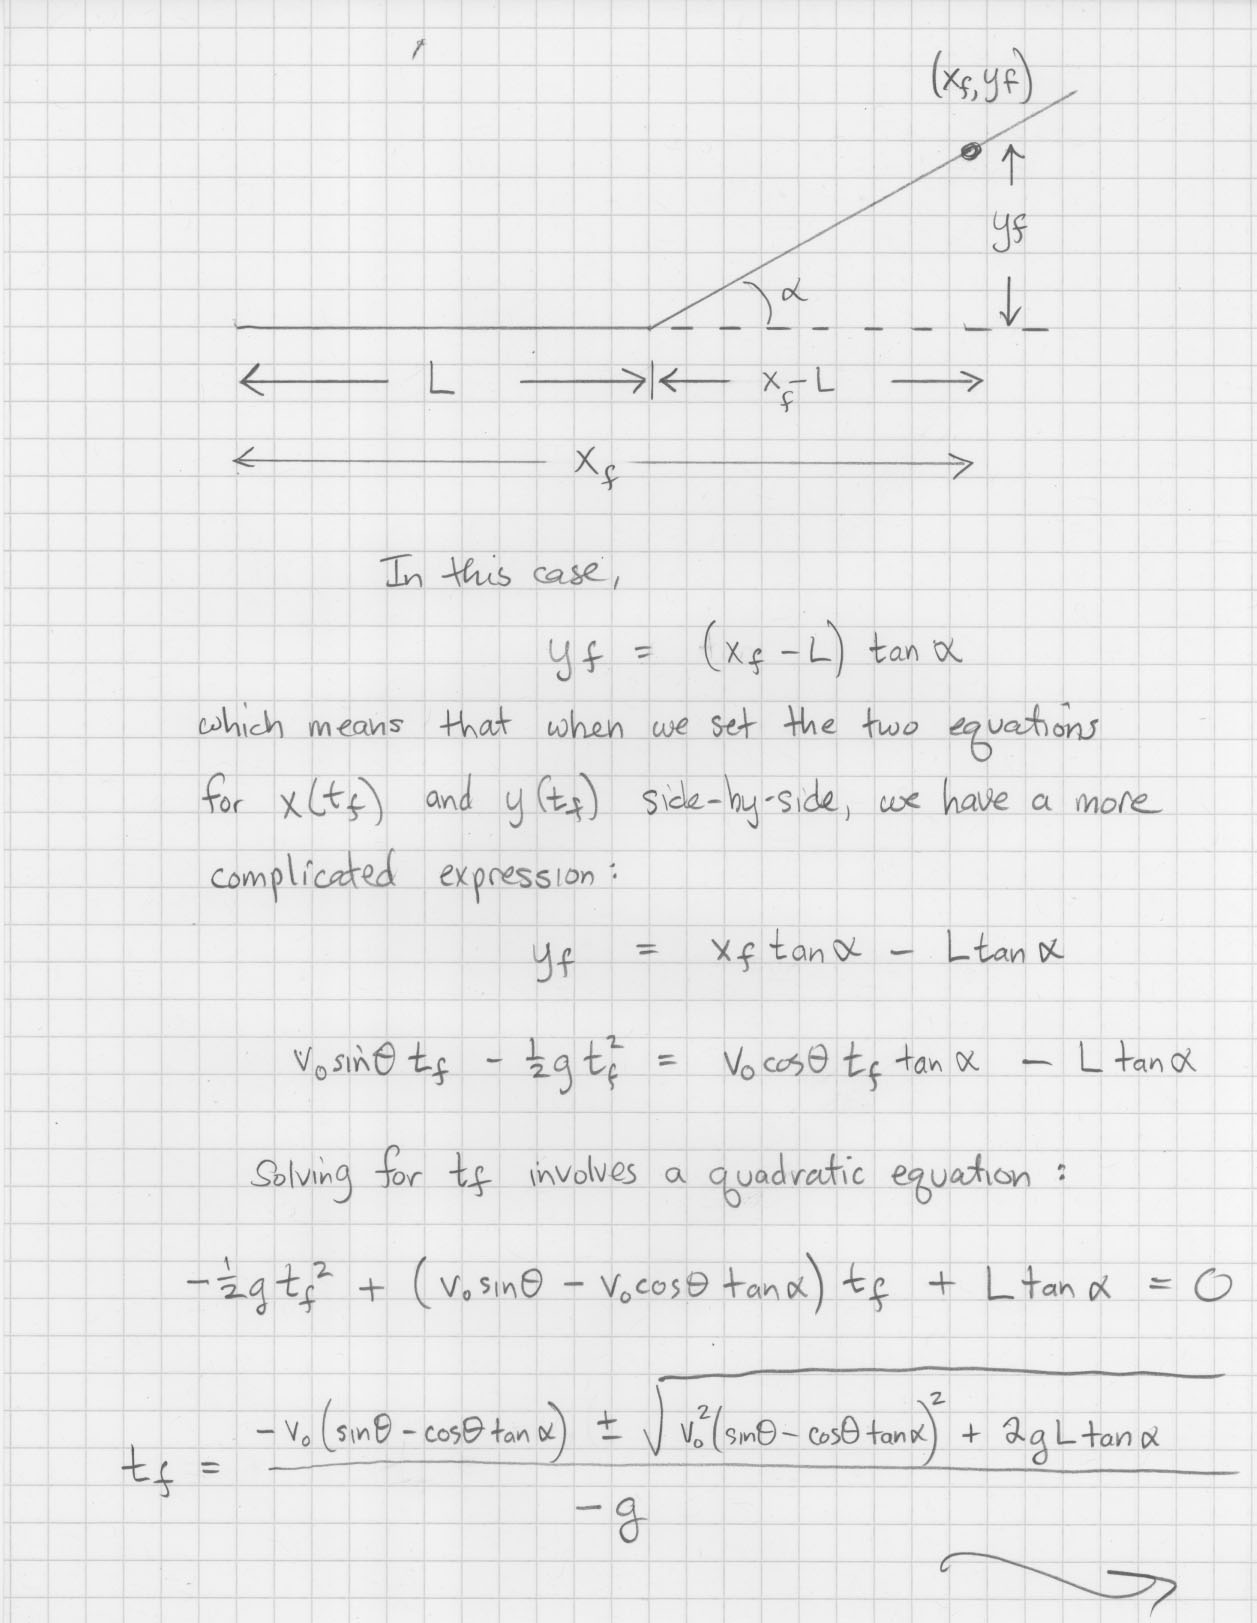 (x_f, y_f)
y_f
α
L
x_f - L
x_f
In this case,
y_f = (x_f - L) tan α
which means that when we set the two equations
for x(t_f) and y(t_f) side-by-side, we have a more
complicated expression:
y_f = x_f tan α - L tan α
v₀ sinθ t_f - ½ g t_f² = v₀ cosθ t_f tan α - L tan α
Solving for t_f involves a quadratic equation:
-½ g t_f² + (v₀ sinθ - v₀ cosθ tan α) t_f + L tan α = 0
t_f = (-v₀ (sinθ - cosθ tan α) ± √(v₀² (sinθ - cosθ tan α)² + 2gL tan α)) / -g